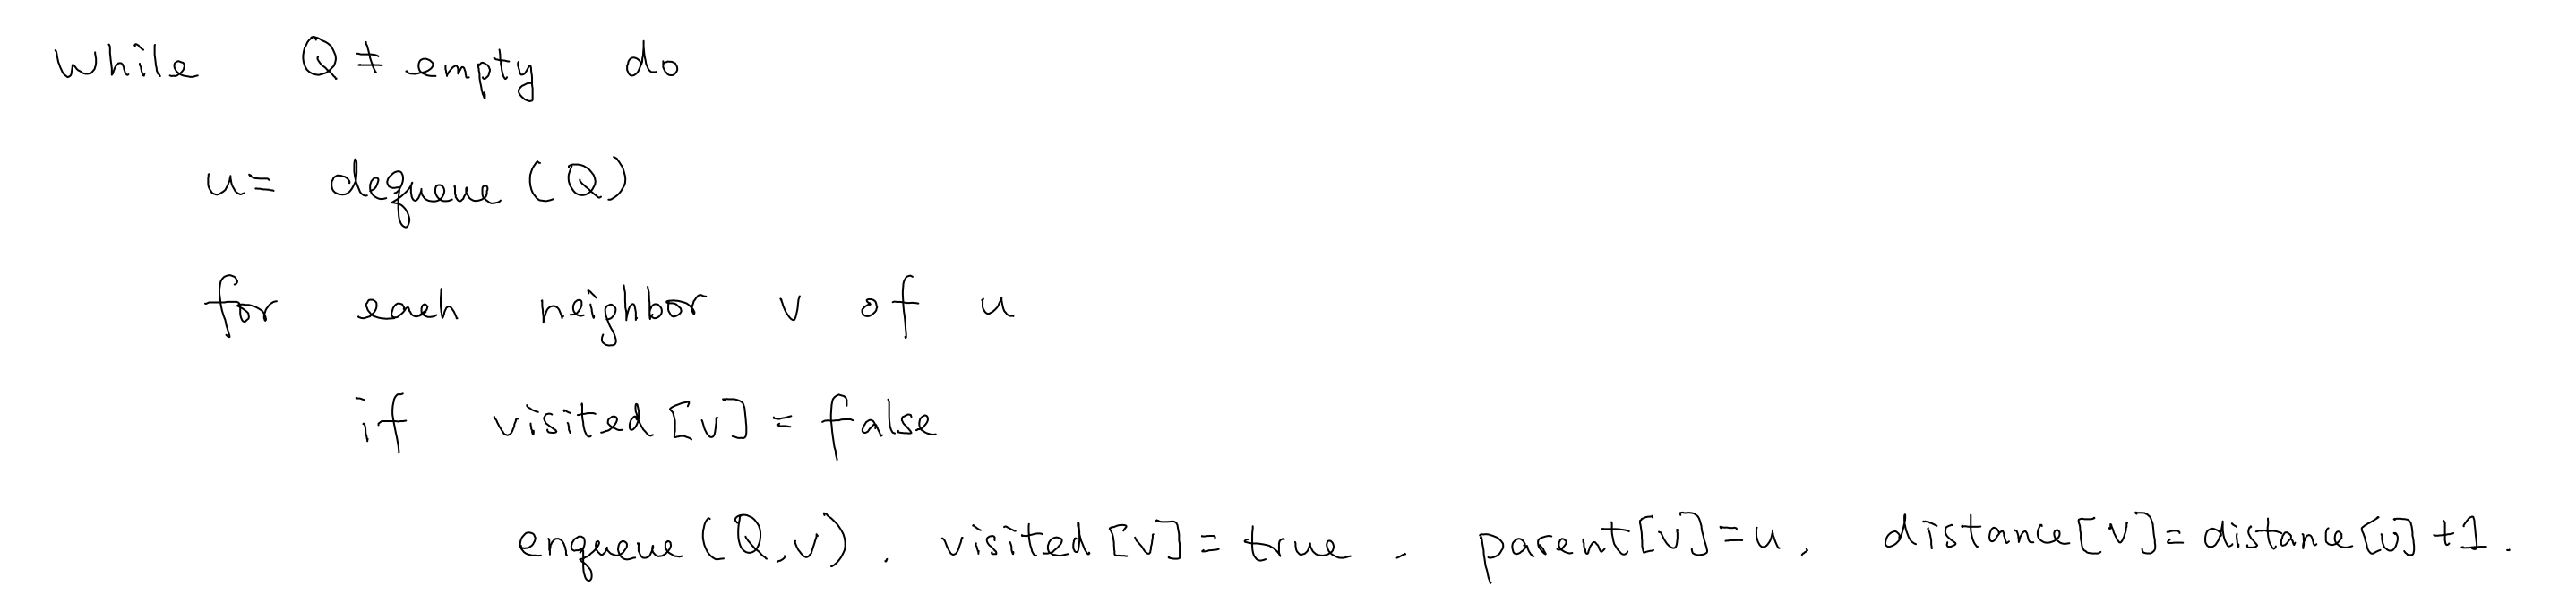 While Q ≠ empty do
u = dequeue (Q)
for each neighbor v of u
if visited [v] = false
enqueue (Q, v). visited [v] = true. parent[v] = u, distance[v] = distance[u] + 1.